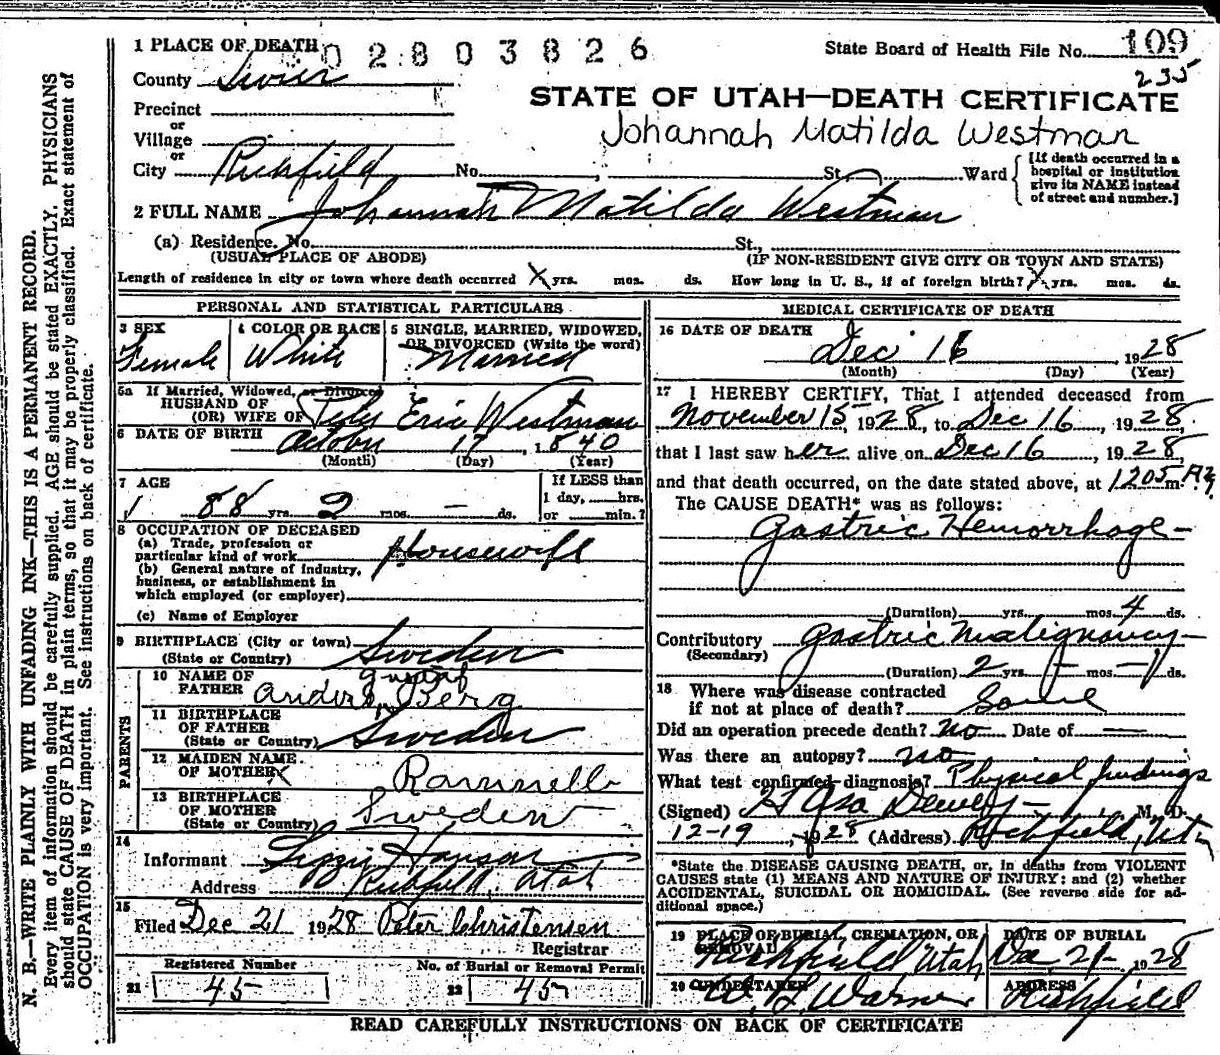 1 PLACE OF DEATH 02803826 State Board of Health File No. 109
235
County Sevier
STATE OF UTAH—DEATH CERTIFICATE
Precinct
or
Village
Johannah Matilda Westman
or
City Richfield No. St. Ward
[If death occurred in a hospital or institution give its NAME instead of street and number.]
2 FULL NAME Johannah Matilda Westman
(a) Residence. No. St.,
(USUAL PLACE OF ABODE) (IF NON-RESIDENT GIVE CITY OR TOWN AND STATE)
Length of residence in city or town where death occurred X yrs. mos. ds. How long in U. S., if of foreign birth? X yrs. mos. ds.
PERSONAL AND STATISTICAL PARTICULARS
3 SEX 4 COLOR OR RACE 5 SINGLE, MARRIED, WIDOWED,
OR DIVORCED (Write the word)
Female White Married
5a If Married, Widowed, or Divorced
HUSBAND OF
(OR) WIFE OF Eric Westman
6 DATE OF BIRTH October 17, 1840
(Month) (Day) (Year)
7 AGE If LESS than
1 day, hrs.
88 yrs. 2 mos. — ds. or min.?
8 OCCUPATION OF DECEASED
(a) Trade, profession or
particular kind of work Housewife
(b) General nature of industry,
business, or establishment in
which employed (or employer)
(c) Name of Employer
9 BIRTHPLACE (City or town)
(State or Country) Sweden
PARENTS
10 NAME OF
FATHER Anders Berg
11 BIRTHPLACE
OF FATHER
(State or Country) Sweden
12 MAIDEN NAME
OF MOTHER
13 BIRTHPLACE
OF MOTHER
(State or Country) Sweden
14
Informant Lizzie Hanson
Address Richfield, Utah
15
Filed Dec 21 1928 Peter Christensen
Registrar
Registered Number No. of Burial or Removal Permit
21 45 22 45
MEDICAL CERTIFICATE OF DEATH
16 DATE OF DEATH
Dec 16, 1928
(Month) (Day) (Year)
17 I HEREBY CERTIFY, That I attended deceased from
November 15, 1928, to Dec 16, 1928,
that I last saw her alive on Dec 16, 1928,
and that death occurred, on the date stated above, at 1205 m.
The CAUSE DEATH* was as follows:
Gastric Hemorrhage—
(Duration) yrs. mos. 4 ds.
Contributory Gastric Malignancy—
(Secondary)
(Duration) 2 yrs. — mos. — ds.
18 Where was disease contracted
if not at place of death?
Did an operation precede death? No Date of —
Was there an autopsy? No
What test confirmed diagnosis? Physical findings
(Signed) Dewey M. D.
12-19, 1928 (Address) Richfield, Utah
*State the DISEASE CAUSING DEATH, or, in deaths from VIOLENT
CAUSES state (1) MEANS AND NATURE OF INJURY; and (2) whether
ACCIDENTAL, SUICIDAL OR HOMICIDAL. (See reverse side for ad-
ditional space.)
19 PLACE OF BURIAL, CREMATION, OR DATE OF BURIAL
REMOVAL Richfield Utah Dec 21- 1928
20 UNDERTAKER ADDRESS
Warner Richfield
READ CAREFULLY INSTRUCTIONS ON BACK OF CERTIFICATE
N. B.—WRITE PLAINLY WITH UNFADING INK—THIS IS A PERMANENT RECORD.
Every item of information should be carefully supplied. AGE should be stated EXACTLY. PHYSICIANS
should state CAUSE OF DEATH in plain terms, so that it may be properly classified. Exact statement of
OCCUPATION is very important. See instructions on back of certificate.